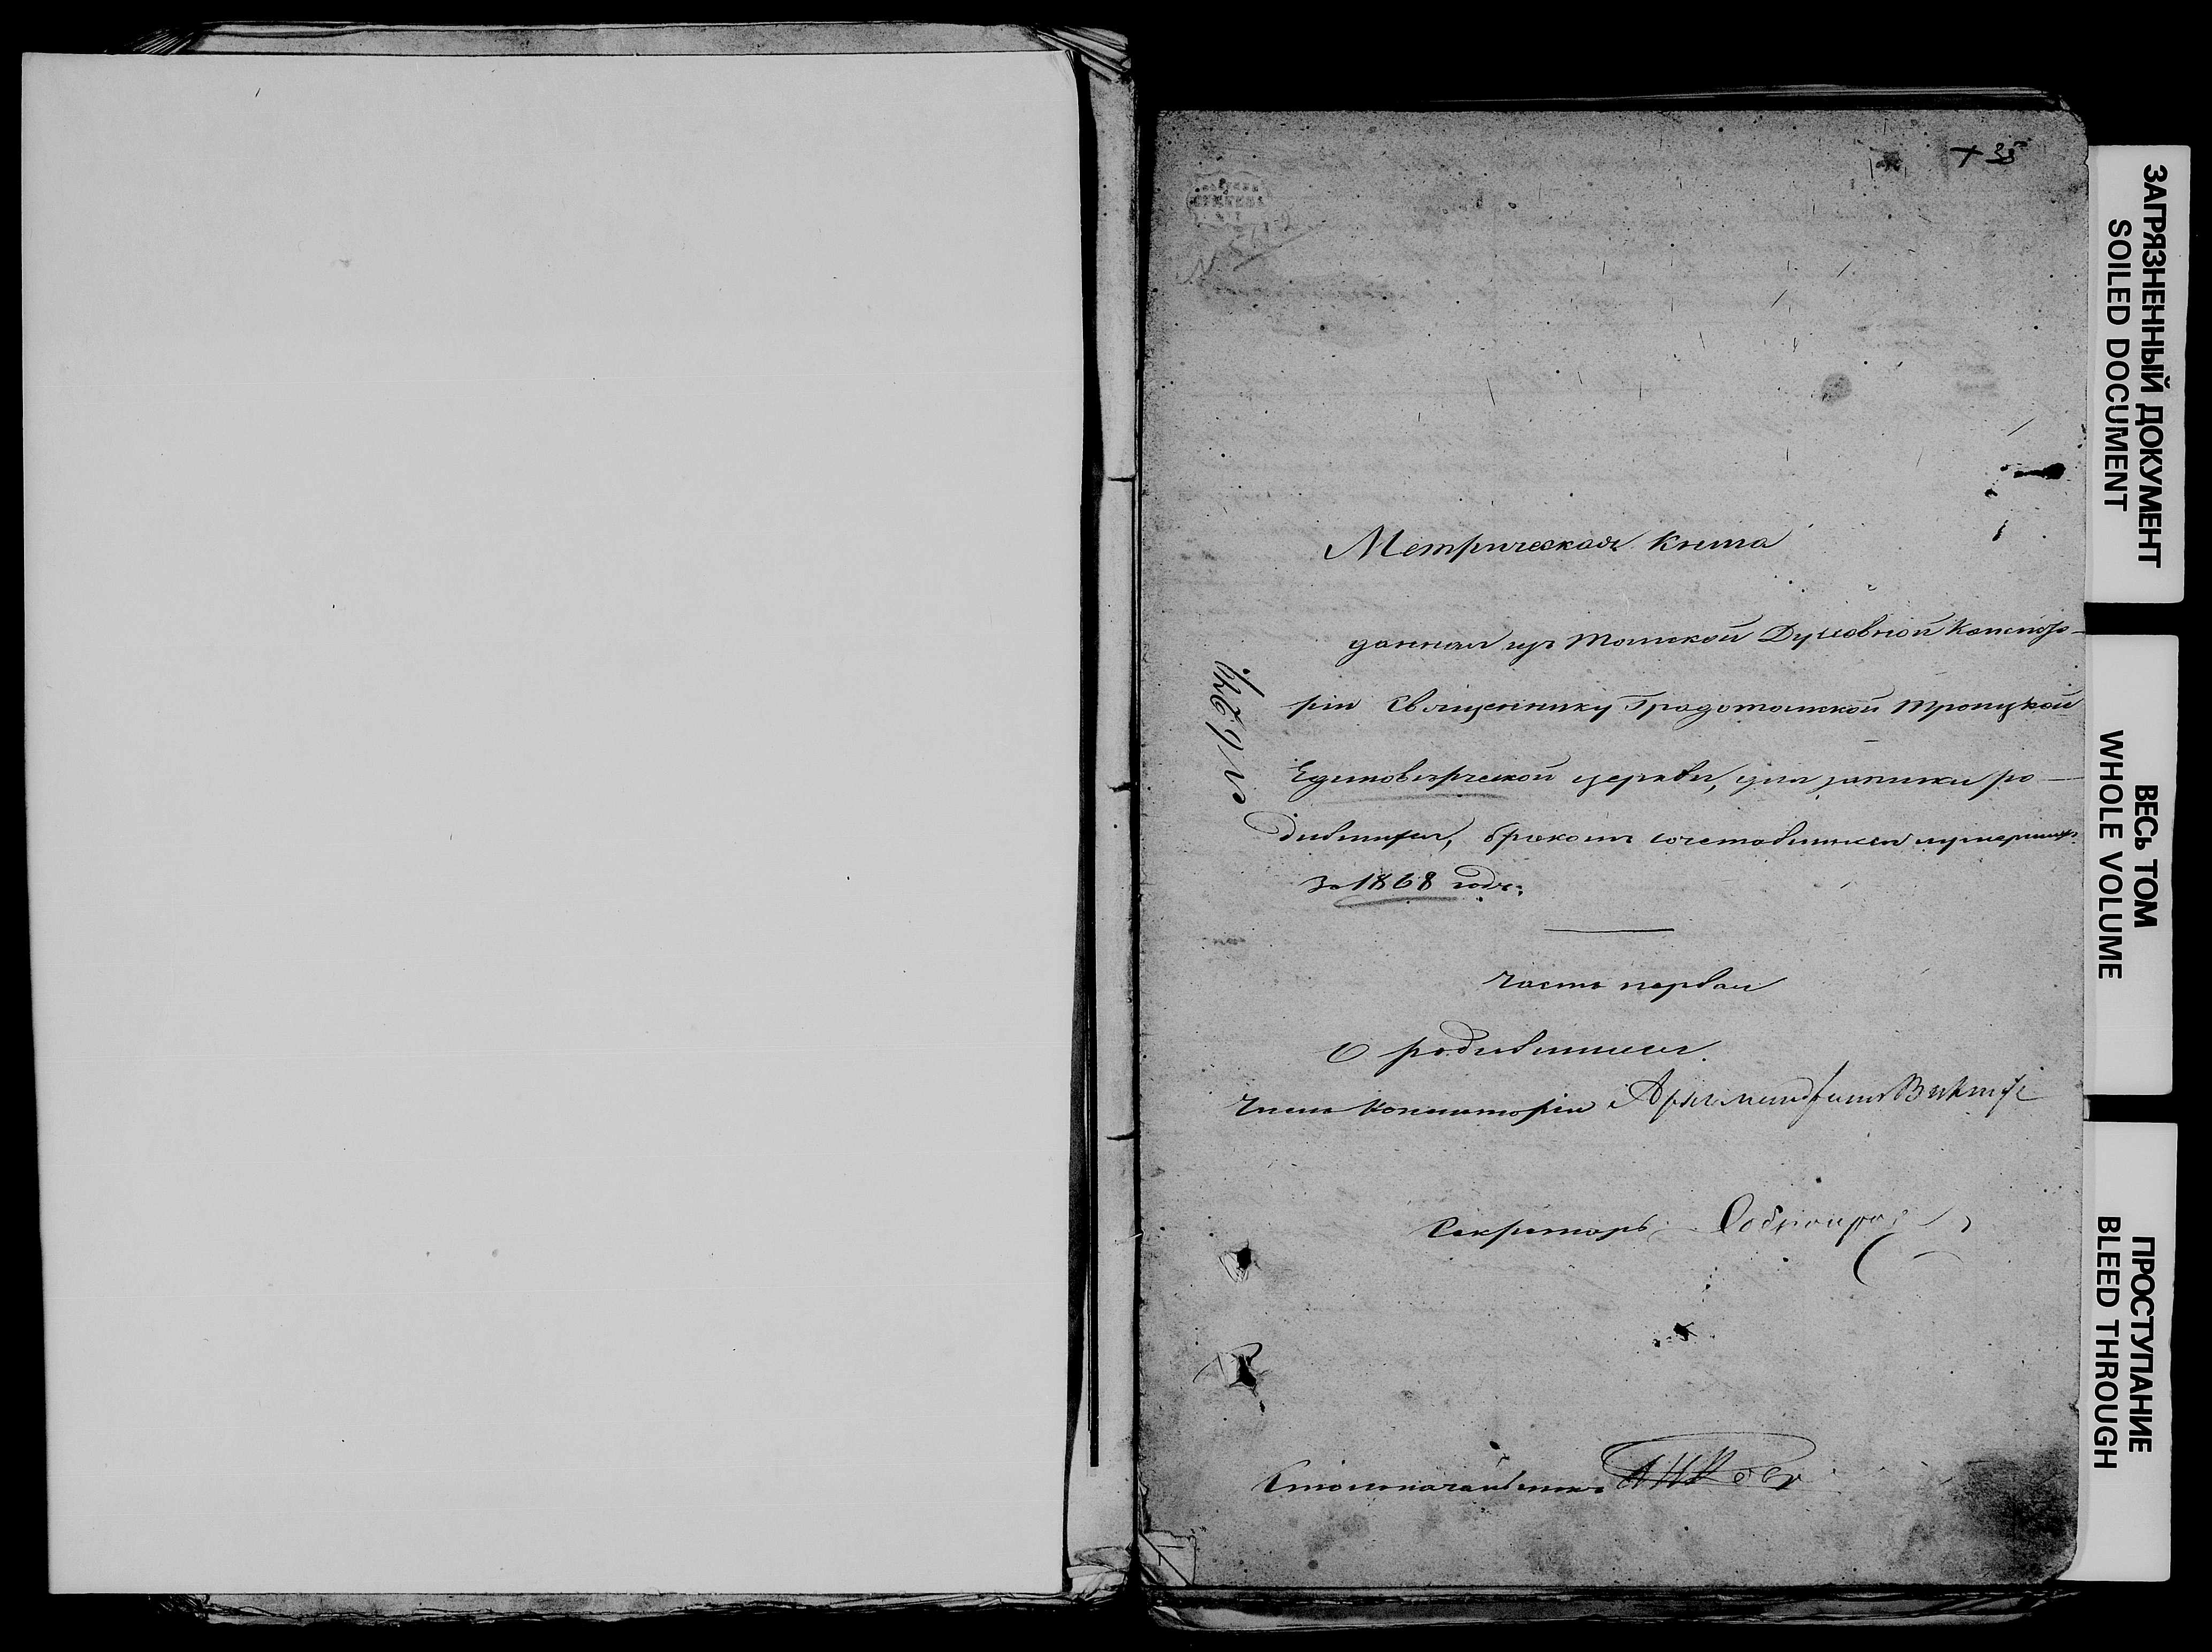 35
Метрическая книга
данная изъ Томской Духовной Консисто-
ріи Священнику Градотомской Троицкой
Единовѣрческой церкви, для записки ро-
дившихся, бракомъ сочетавшихся и умершихъ
за 1868 годъ.
Часть первая
О родившихся.
Членъ Консисторіи Архимандритъ Викторъ
Секретарь
Столоначальникъ
ЗАГРЯЗНЕННЫЙ ДОКУМЕНТ
SOILED DOCUMENT
ВЕСЬ ТОМ
WHOLE VOLUME
ПРОСТУПАНИЕ
BLEED THROUGH